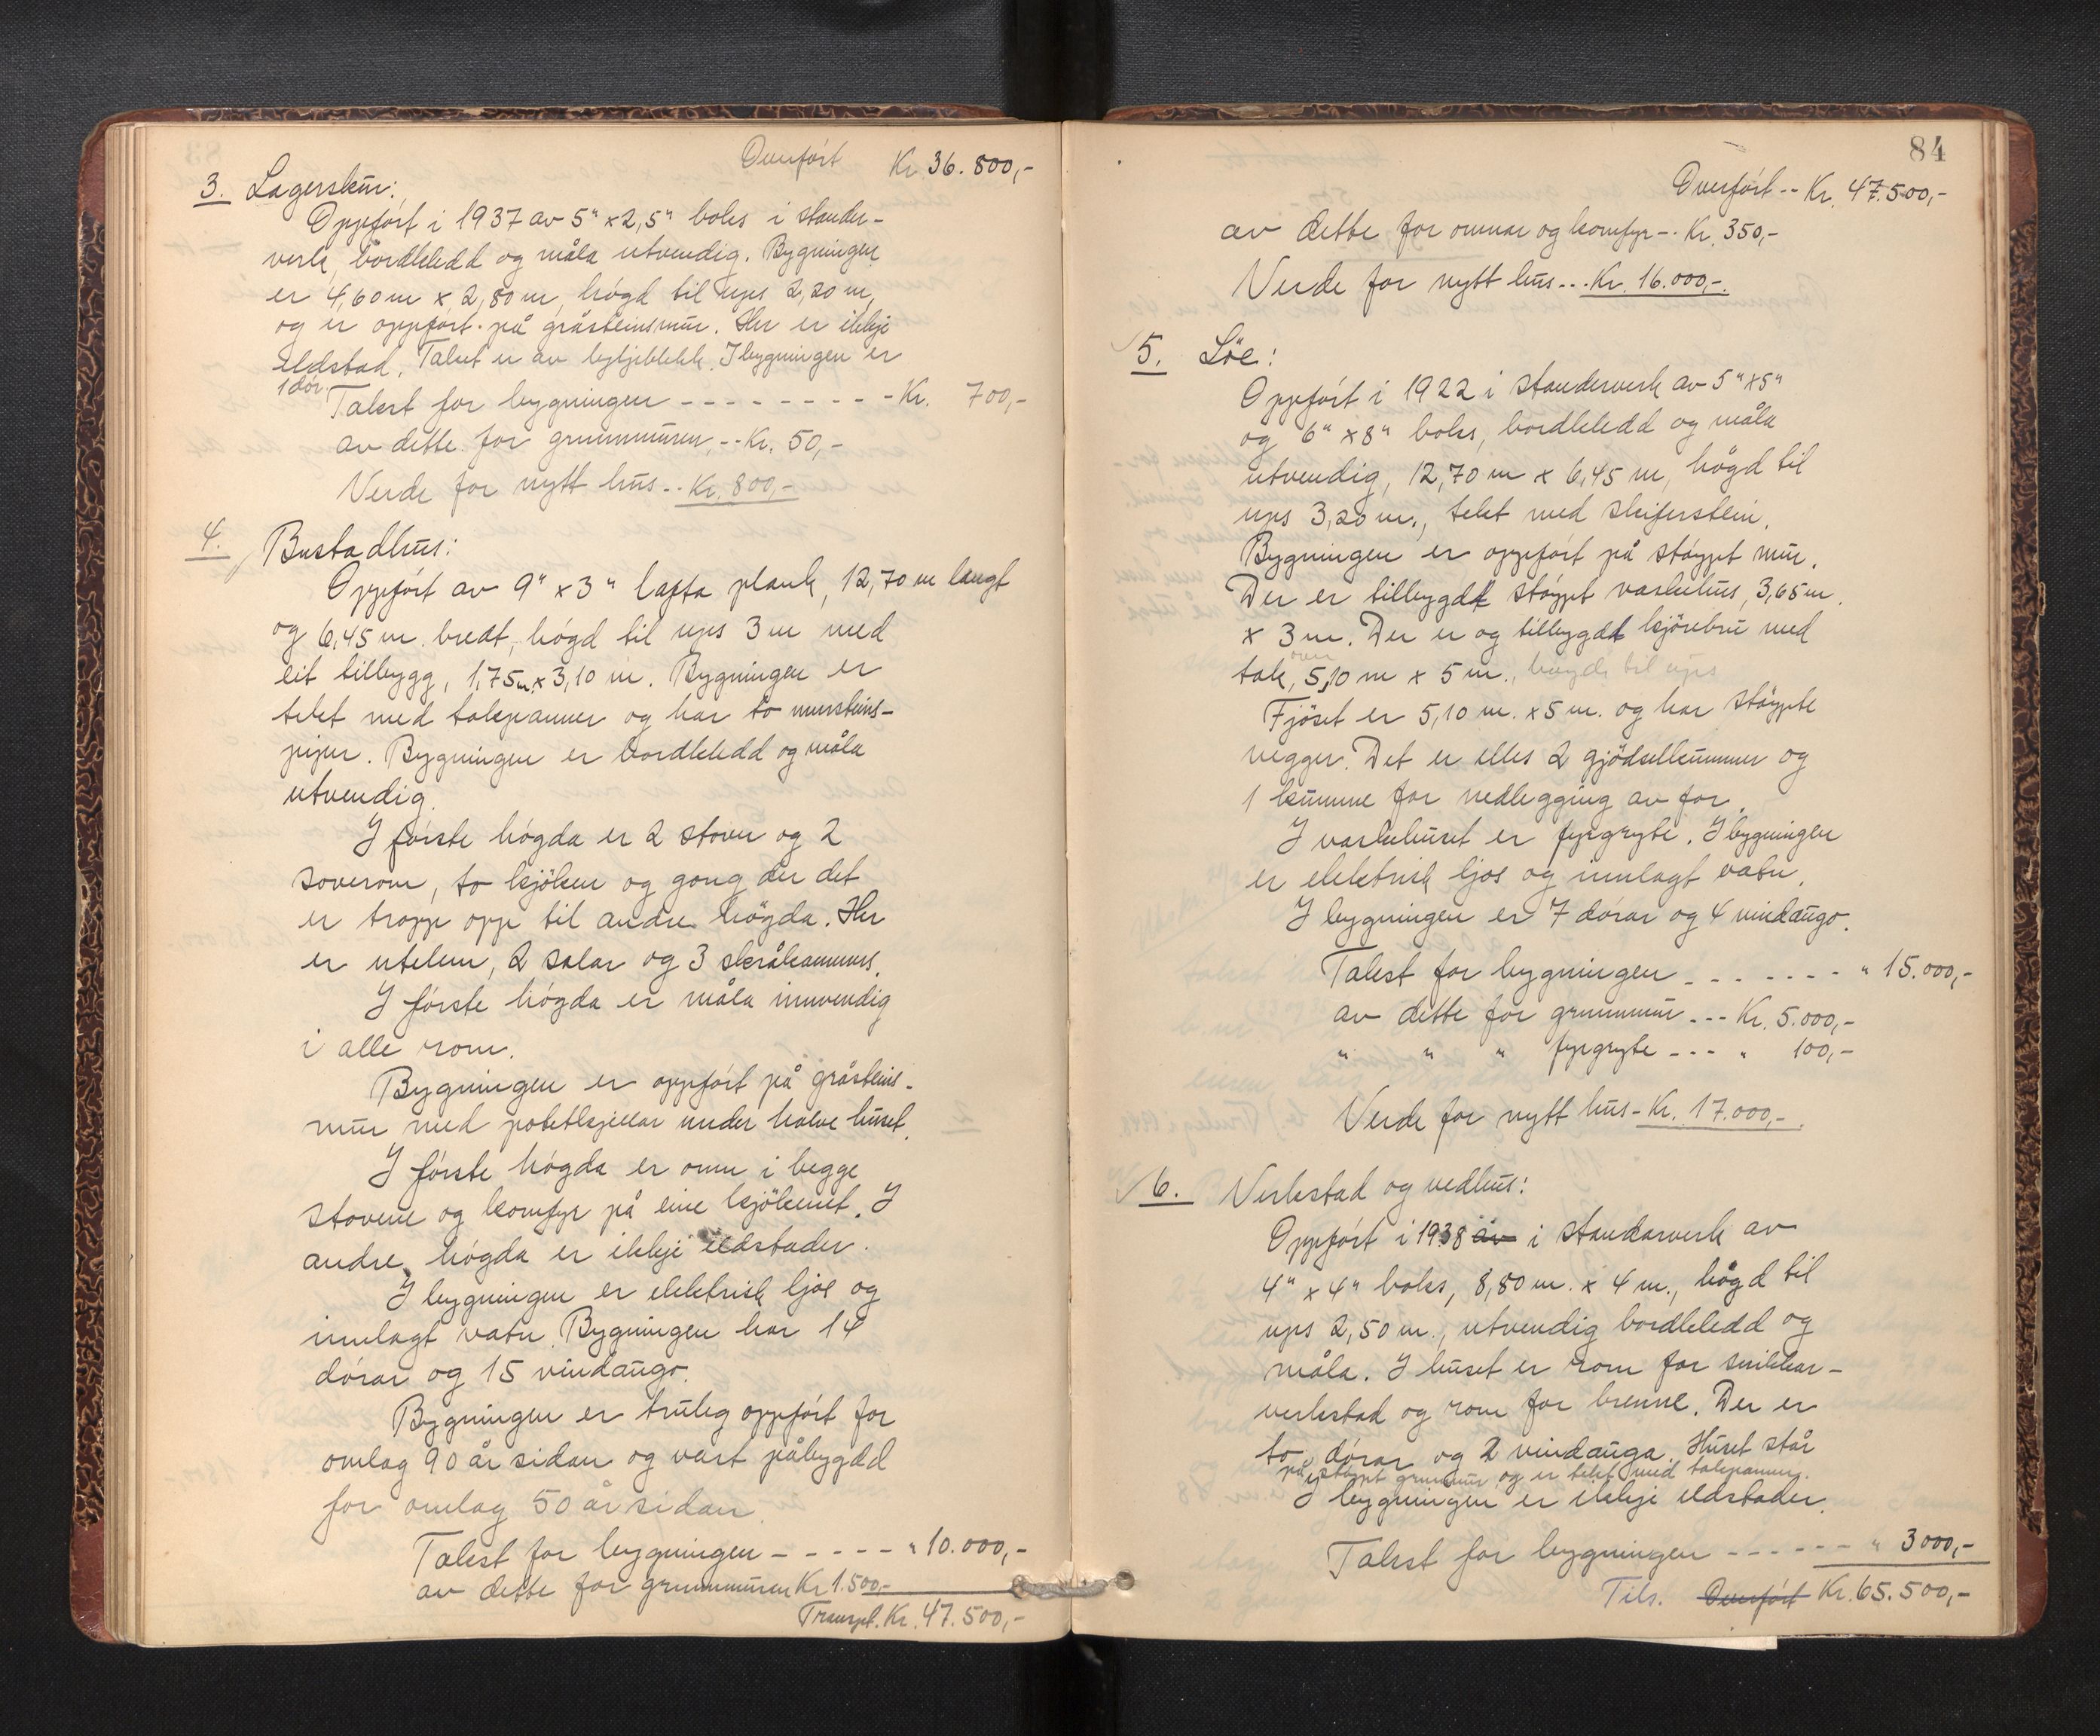 Overført Kr 36.800,-
3. Lagerskur:
Oppført i 1937 av 5" x 2,5" boks i stander-
verk, bordkledd og måla utvendig. Bygningen
er 4,60 m x 2,80 m, høgd til ups 2,20 m,
og er oppført på gråsteinsmur. Her er ikkje
eldstad. Taket er av bylgjeblekk. I bygningen er
1 dør.
Takst for bygningen - - - - - - - - - Kr. 700,-
av dette for grunnmuren -- Kr. 50,-
Verde for nytt hus -- Kr. 800,-
4. Bustadhus:
Oppført av 9" x 3" lafta plank, 12,70 m langt
og 6,45 m. bredt, høgd til ups 3 m med
eit tilbygg, 1,75 m x 3,10 m. Bygningen er
tekt med takpanner og har to mursteins-
pipur. Bygningen er bordkledd og måla
utvendig.
I første høgda er 2 stover og 2
soverom, to kjøken og gong der det
er tropp opp til andre høgda. Her
er utelem, 2 salar og 3 skråkammers.
I første høgda er måla innvendig
i alle rom.
Bygningen er oppført på gråsteins-
mur med potetkjellar under halve huset.
I første høgda er omn i begge
stovene og komfyr på eine kjøkenet. I
andre høgda er ikkje eldstader.
I bygningen er elektrisk ljos og
innlagt vatn. Bygningen har 14
dørar og 15 vindaugo.
Bygningen er truleg oppført for
omlag 90 år sidan og vart påbygdd
for omlag 50 år sidan.
Takst for bygningen - - - - - " 10.000,-
av dette for grunnmuren Kr 1.500,-
Transpt. Kr. 47.500,-
84
Overført -- Kr. 47.500,-
av dette for omnar og komfyr -- Kr. 350,-
Verde for nytt hus --- Kr. 16.000,-.
5. Löe:
Oppført i 1922 i standerverk av 5" x 5"
og 6" x 8" boks, bordkledd og måla
utvendig, 12,70 m x 6,45 m, høgd til
ups 3,20 m., tekt med skiferstein.
Bygningen er oppført på støypt mur.
Der er tilbygdt støypt vaskehus, 3,65 m.
x 3 m. Der er og tilbygdt kjørebru med
over
tak, 5,10 m x 5 m., høgde til ups
Fjøset er 5,10 m. x 5 m. og har støypte
vegger. Det er elles 2 gjødselkummer og
1 kumme for nedlegging av for.
I vaskehuset er fyrgryte. I bygningen
er elektrisk ljos og innlagt vatn.
I bygningen er 7 dørar og 4 vindaugo.
Takst for bygningen - - - - - - - " 15.000,-
av dette for grunnmur --- Kr. 5.000,-
" " " fyrgryte --- " 100,-
Verde for nytt hus - Kr. 17.000,-.
6. Verkstad og vedhus:
Oppført i 1938 av i standarverk av
4" x 4" boks, 8,80 m. x 4 m., høgd til
ups 2,50 m., utvendig bordkledd og
måla. I huset er rom for snikkar-
verkstad og rom for brenne. Der er
to dørar og 2 vindauga. Huset står
på støypt grunnmur og er tekt med takpanner.
I bygningen er ikkje eldstader.
Takst for bygningen - - - - - - " 3000,-
Tils. Overført Kr. 65.500,-